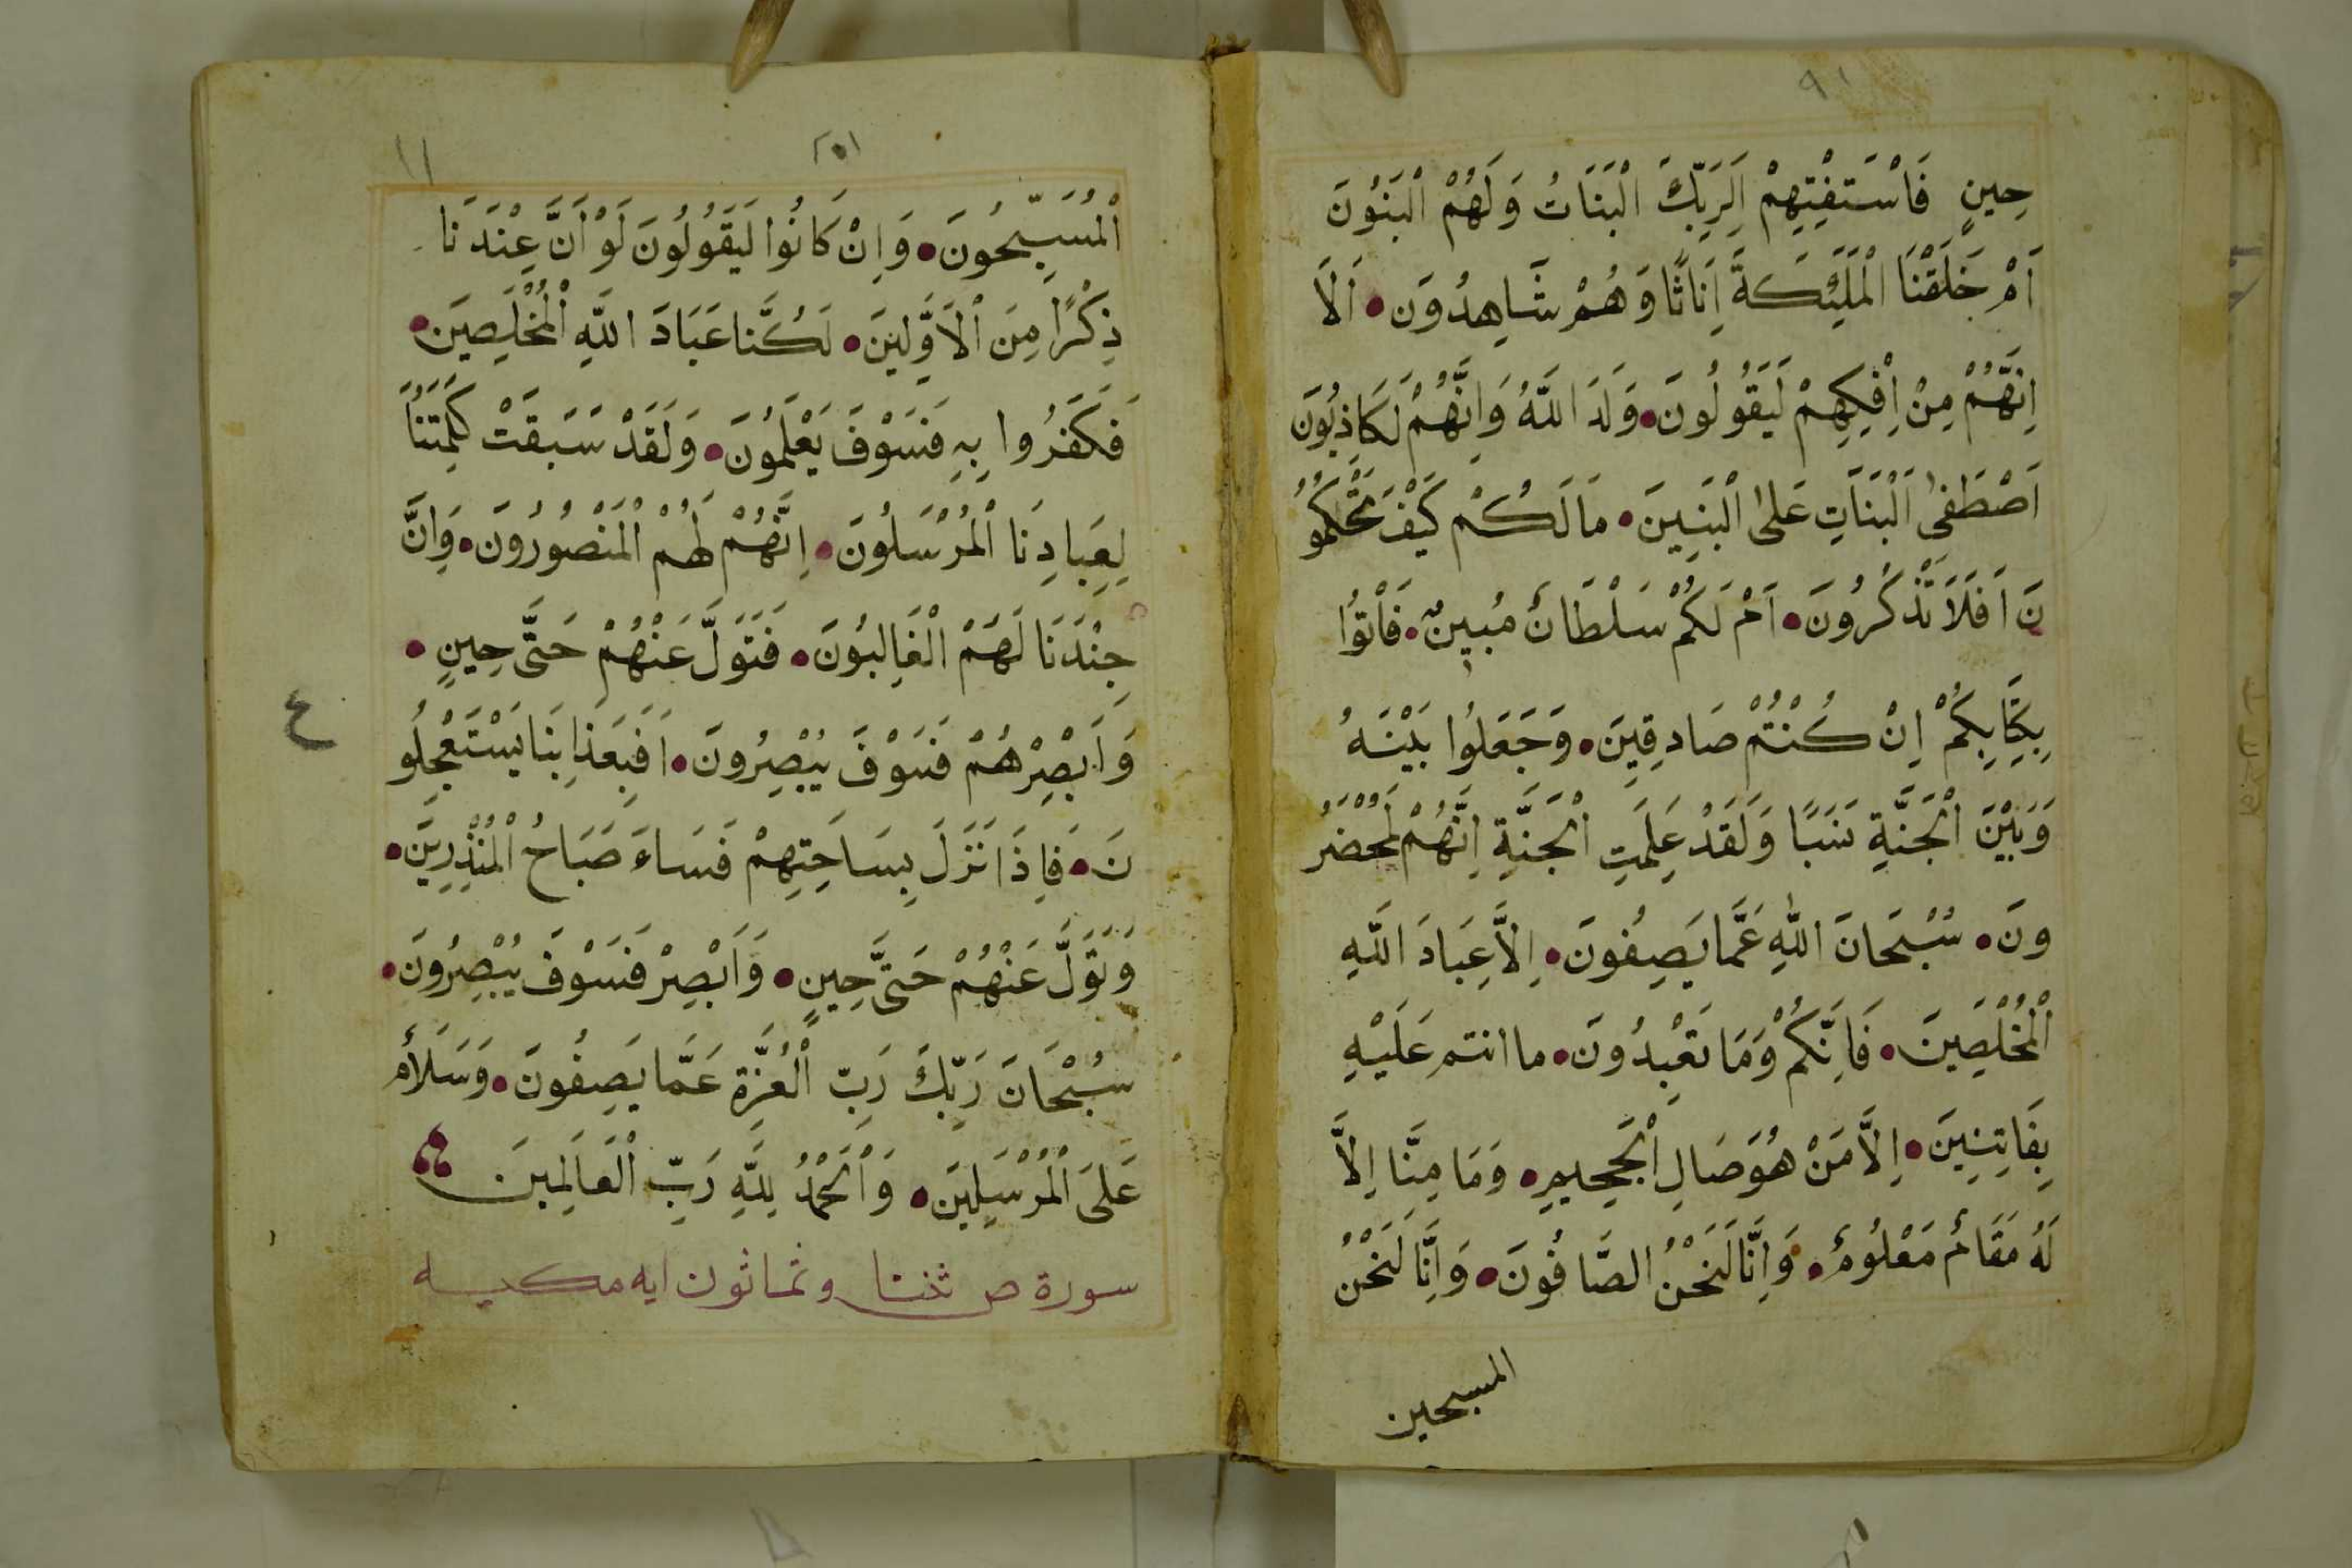 ٩١
حِينٍ فَاسْتَفْتِهِمْ اَلِرَبِّكَ الْبَنَاتُ وَلَهُمْ الْبَنُونَ
اَمْ خَلَقْنَا الْمَلَئِكَةَ اِنَاثًا وَهُمْ شَاهِدُونَ • اَلَا
اِنَّهُمْ مِنْ اِفْكِهِمْ لَيَقُولُونَ • وَلَدَ اللَّهُ وَاِنَّهُمْ لَكَاذِبُونَ
اَصْطَفَى الْبَنَاتِ عَلَى الْبَنِينَ • مَا لَكُمْ كَيْفَ تَحْكُمُو
نَ اَفَلَا تَذَكَّرُونَ • اَمْ لَكُمْ سَلْطَانٌ مُبِينٌ • فَأْتُوا
بِكِتَابِكُمْ اِنْ كُنْتُمْ صَادِقِينَ • وَجَعَلُوا بَيْنَهُ
وَبَيْنَ الْجَنَّةِ نَسَبًا وَلَقَدْ عَلِمَتِ الْجَنَّةِ اِنَّهُمْ لَمُحْضَرُ
ونَ • سُبْحَانَ اللَّهِ عَمَّا يَصِفُونَ • اِلَّا عِبَادَ اللَّهِ
الْمُخْلَصِينَ • فَاِنَّكُمْ وَمَا تَعْبِدُونَ • ما انتم عَلَيْهِ
بِفَاتِنِينَ • اِلَّا مَنْ هُوَ صَالِ الْجَحِيمِ • وَمَا مِنَّا اِلَّا
لَهُ مَقَامٌ مَعْلُومٌ • وَاِنَّا لَنَحْنُ الصَّافُونَ • وَاِنَّا لَنَحْنُ
المسبحين
١١
الْمُسَبِّحُونَ • وَاِنْ كَانُوا لَيَقُولُونَ لَوْ اَنَّ عِنْدَنَا
ذِكْرًا مِنَ الْاَوَّلِينَ • لَكُنَّا عَبَادَ اللَّهِ الْمُخْلَصِينَ •
فَكَفَرُوا بِهِ فَسَوْفَ يَعْلَمُونَ • وَلَقَدْ سَبَقَتْ كَلِمَتُنَا
لِعِبَادِنَا الْمُرْسَلُونَ • اِنَّهُمْ لَهُمْ الْمَنْصُورُونَ • وَاِنَّ
جِنْدَنَا لَهَمْ الْغَالِبُونَ • فَتَوَلَّ عَنْهُمْ حَتَّى حِينٍ •
وَاَبْصِرْهُمْ فَسَوْفَ يُبْصِرُونَ • اَفَبِعَذَابِنَا يَسْتَعْجِلُو
نَ • فَاِذَا نَزَلَ بِسَاحَتِهِمْ فَسَاءَ صَبَاحُ الْمُنْذِرِينَ •
وَتَوَلَّ عَنْهُمْ حَتَّى حِينٍ • وَاَبْصِرْ فَسَوْفَ يُبْصِرُونَ •
سُبْحَانَ رَبِّكَ رَبِّ الْعُزَّةِ عَمَّا يَصِفُونَ • وَسَلَامٌ
عَلَى الْمُرْسَلِينَ • وَالْحَمْدُ لِلَّهِ رَبِّ الْعَالَمِينَ
سورة ص ثنتا وثمانون ايه مكيه
ع